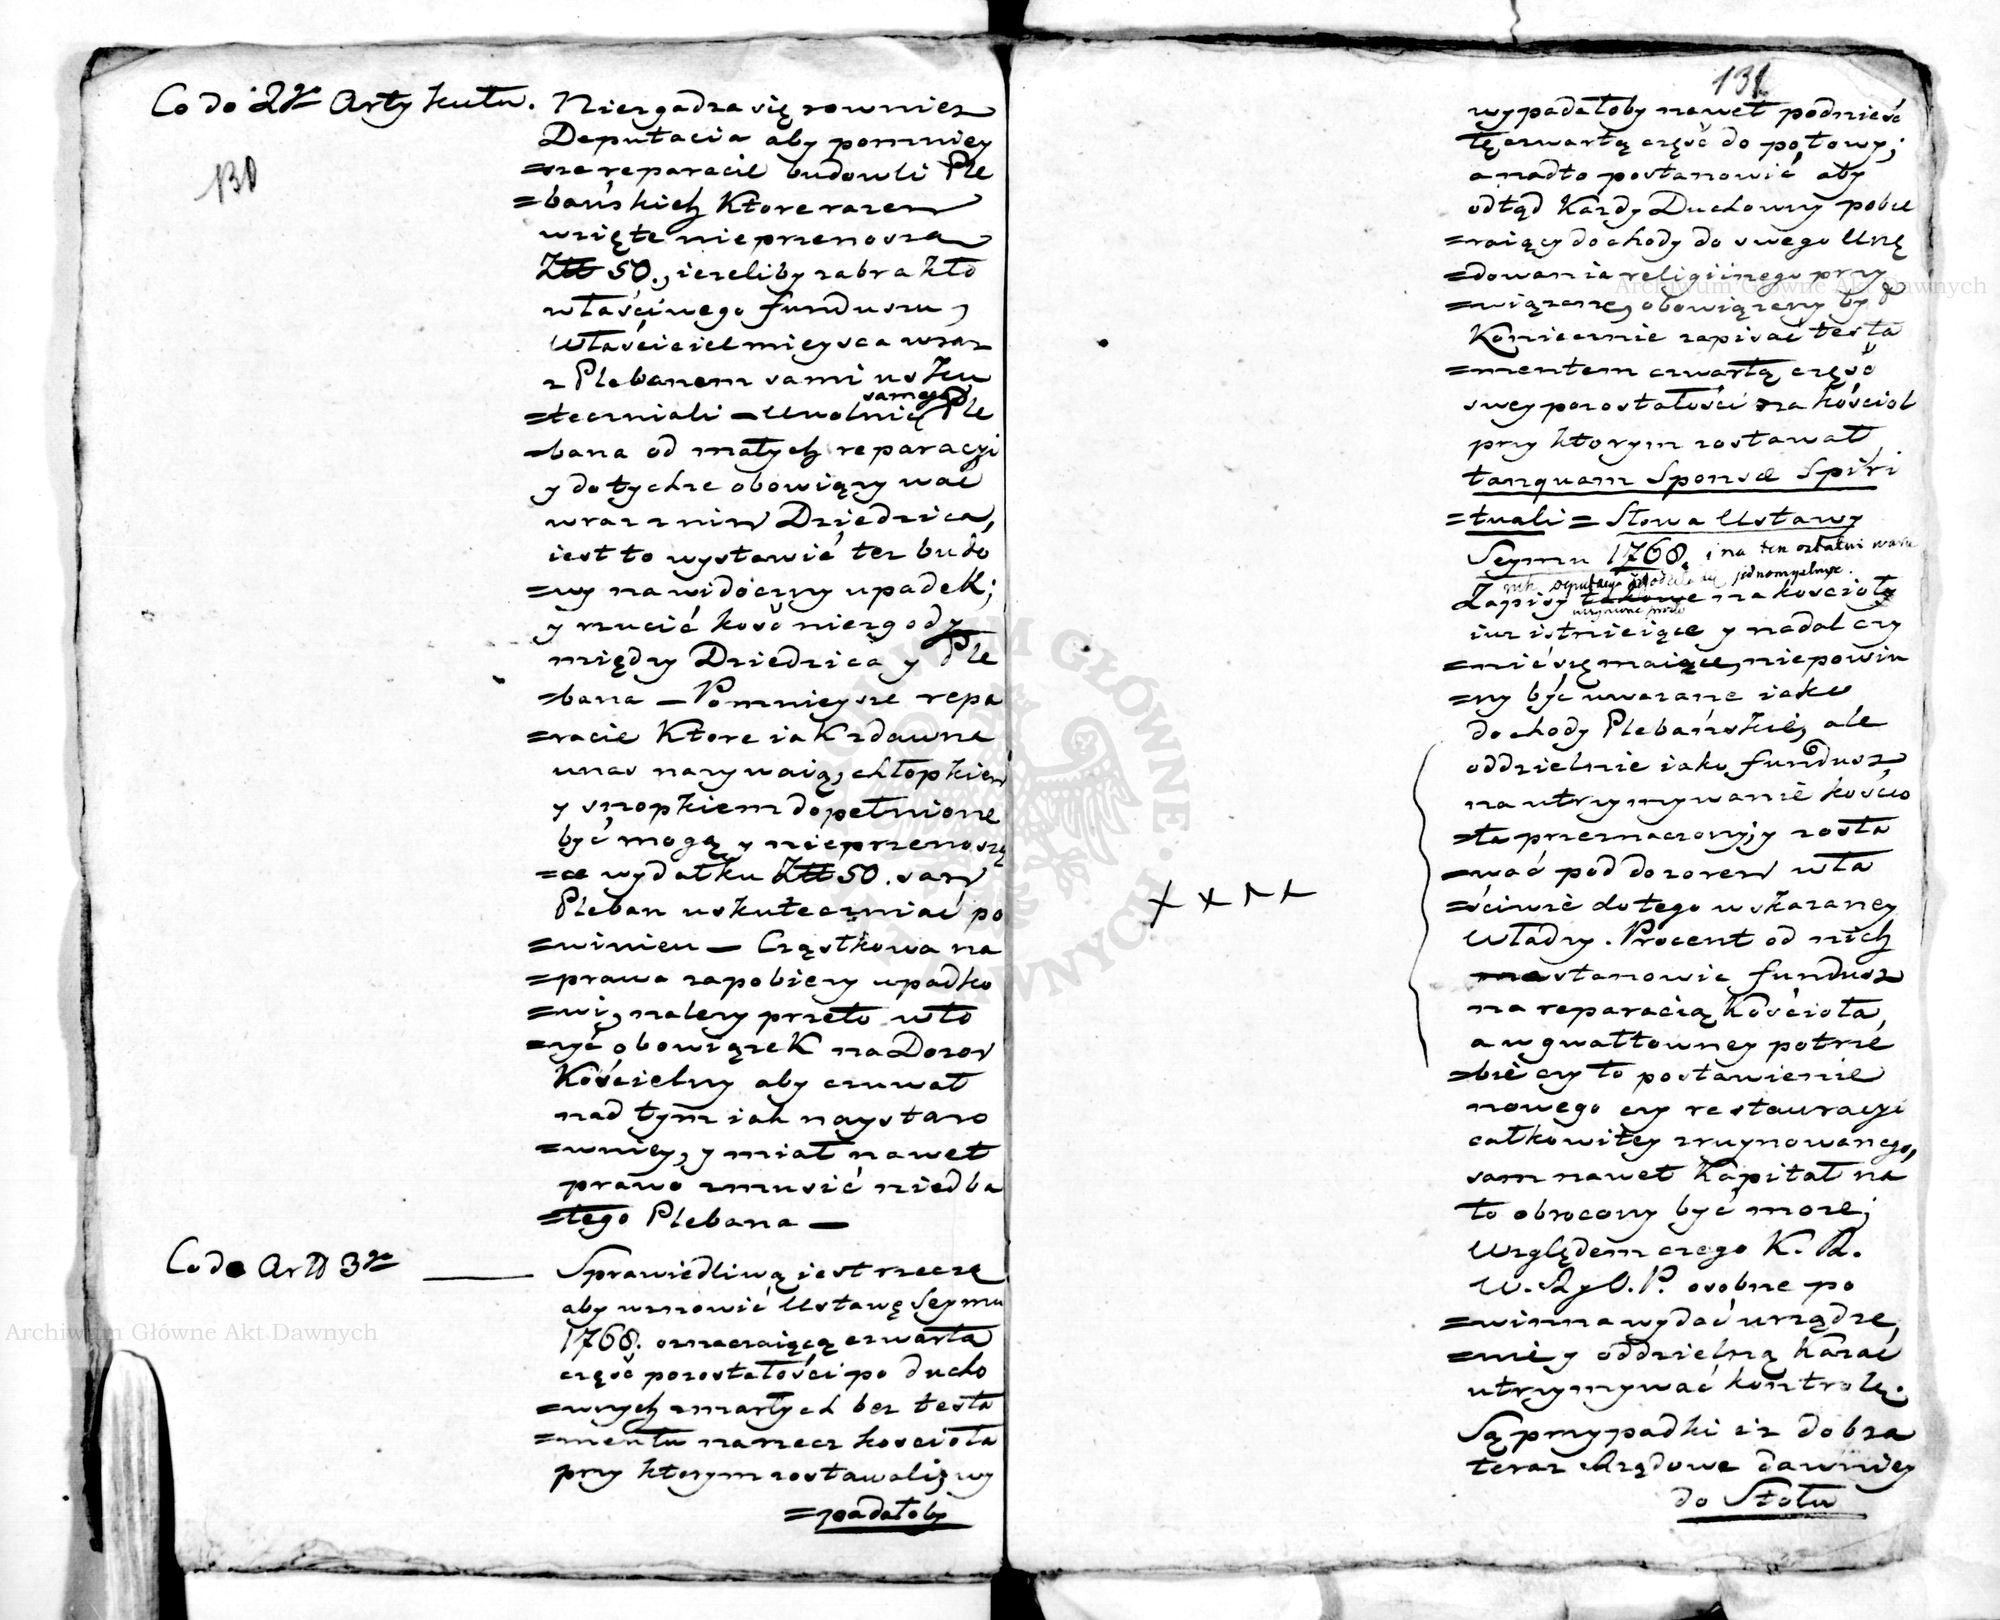 Co do 2go Artykułu. Niezgadza się rownież
130
Deputacia aby pomniey
=sze reparacie budowli Ple
=bańskich Ktore razem
wzięte nieprzenoszą
Złł 50., iezeliby zabrakło
właściwego funduszu,
Właściciel mieysca wraz
z Plebanem sami usku
=teczniali – Uwolnić samego Ple
=bana od małych reparacyi
y do tychże obowiązywac
wraz z nim Dziedzica,
iest to wystawić też budo
=wy na widoczny upadek;
y rzucić kość niezgody
między Dziedzica y Ple
=bana – Pomnieysze repa
=racie Ktore iak zdawna
u nas nazywaią, chłopkiem
y snopkiem dopełnione
być mogą y nieprzenoszą
=ce wydatku Złł 50. sam
Pleban uskuteczniać po
=winien – Cząstkowa na
=prawa zapobieży upadko
=wi, należy przeto wło
=żyć obowiązek na Dozor
Kościelny aby czuwał
nad tym iak naystaro
=wniey, y miał nawet
prawo zmusić niedba
=łego Plebana –
Co do Artł 3go — Sprawiedliwą iest rzeczą
aby wznowić Ustawę Seymu
1768. oznaczaiącą czwarta
część pozostałości po ducho
=wnych zmarłych bez testa
=mentu na rzecz kościoła
przy ktorym zostawali, wy
=padałoby
131
wypadałoby nawet podnieść
tę czwartą część do połowy;
a nadto postanowić, aby
odtąd Każdy Duchowny pobie
=raiący dochody do swego Urzę
=dowania religiinego przy
=wiązane, obowiązany był
Koniecznie zapisać testa
=mentem czwartą część
swey pozostałości na kościoł
przy ktorym zostawał
tanquam Sponsæ Spiri
=tuali = Słowa Ustawy
Seymu 1768. i na ten ostatni
jednomyslnie.
Zapisy takowe na kościoły
iuż istnieiące y nadal czy
=nić się maiące, niepowin
=ny być uwazane iako
dochody Plebańskie, ale
oddzielnie iako fundusz
na utrzymywanie kościo
=ła przeznaczony, y zosta
=wać pod dozorem wła
=ściwie do tego wskazaney
Władzy. Procent od nich
stanowić fundusz
na reparacią Kościoła,
a w gwałtowney potrze
=bie czy to postawienie
nowego czy restauracyi
całkowitey zruynowanego,
sam nawet Kapitał na
to obrocony być może;
Względem czego K. R.
W. R y O. P. osobne po
=winna wydać urządze
=nie y oddzielną kazać
utrzymywać kontrolę.
Są przypadki iż dobra
teraz Rządowe dawniey
do Stołu
xxxx
Archiwum Główne Akt Dawnych
Archiwum Główne Akt Dawnych